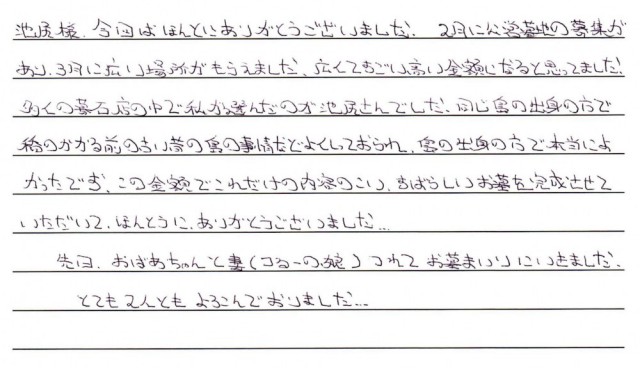 池尻様、今回はほんとにありがとうございました。2月に公営墓地の募集が
あり、3月に広い場所がもらえました。広くてすごい高い金額になると思ってました。
多くの墓石店の中で私が選んだのが池尻さんでした。同じ島の出身の方で
橋のかかる前の古い昔の島の事情などよくしておられ、島の出身の方で本当によ
かったです。この金額でこれだけの内容のこい、すばらしいお墓を完成させて
いただいて、ほんとうに、ありがとうございました…
先日、おばあちゃんと妻( の娘)つれてお墓まいりにいきました。
とても2人ともよろこんでおりました…